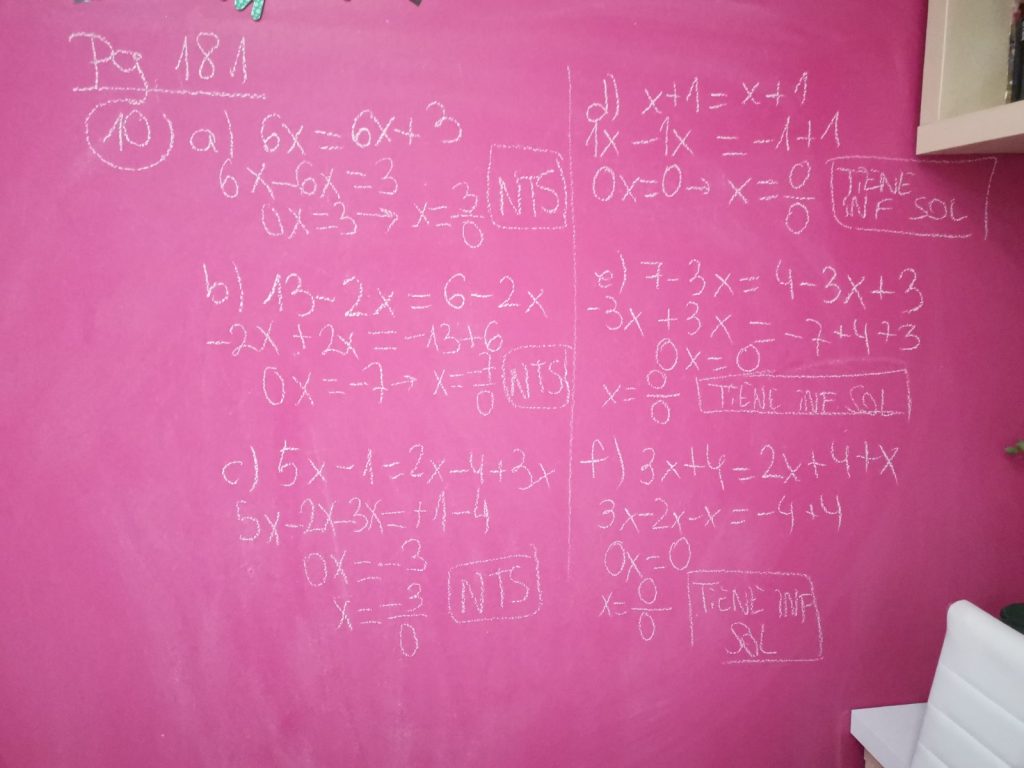 Pg 181
10) a) 6x = 6x + 3
6x - 6x = 3
0x = 3 → x = 3/0 NTS
b) 13 - 2x = 6 - 2x
-2x + 2x = -13 + 6
0x = -7 → x = -7/0 NTS
c) 5x - 1 = 2x - 4 + 3x
5x - 2x - 3x = +1 - 4
0x = -3
x = -3/0 NTS
d) x + 1 = x + 1
1x - 1x = -1 + 1
0x = 0 → x = 0/0 TIENE INF SOL
e) 7 - 3x = 4 - 3x + 3
-3x + 3x = -7 + 4 + 3
0x = 0
x = 0/0 TIENE INF SOL
f) 3x + 4 = 2x + 4 + x
3x - 2x - x = -4 + 4
0x = 0
x = 0/0 TIENE INF SOL